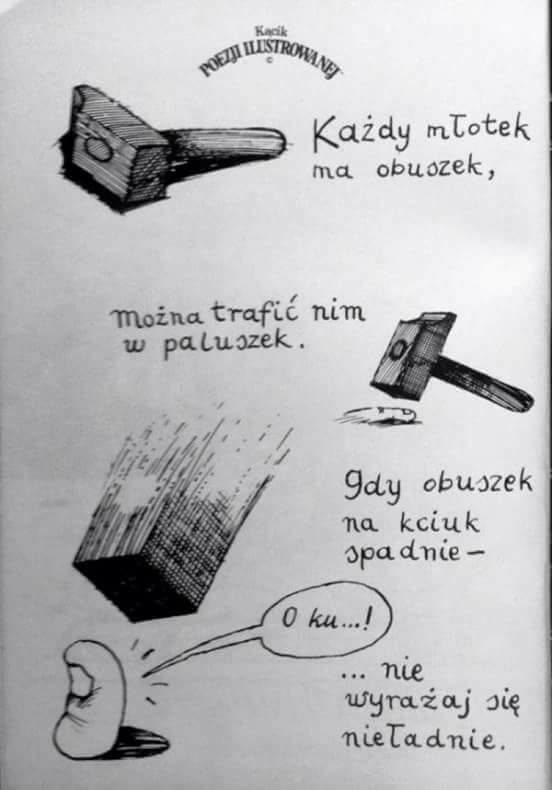 Kącik
POEZJI ILUSTROWANEJ
©
Każdy młotek
ma obuszek,
można trafić nim
w paluszek.
gdy obuszek
na kciuk
spadnie—
O ku...!
... nie
wyrażaj się
nieładnie.